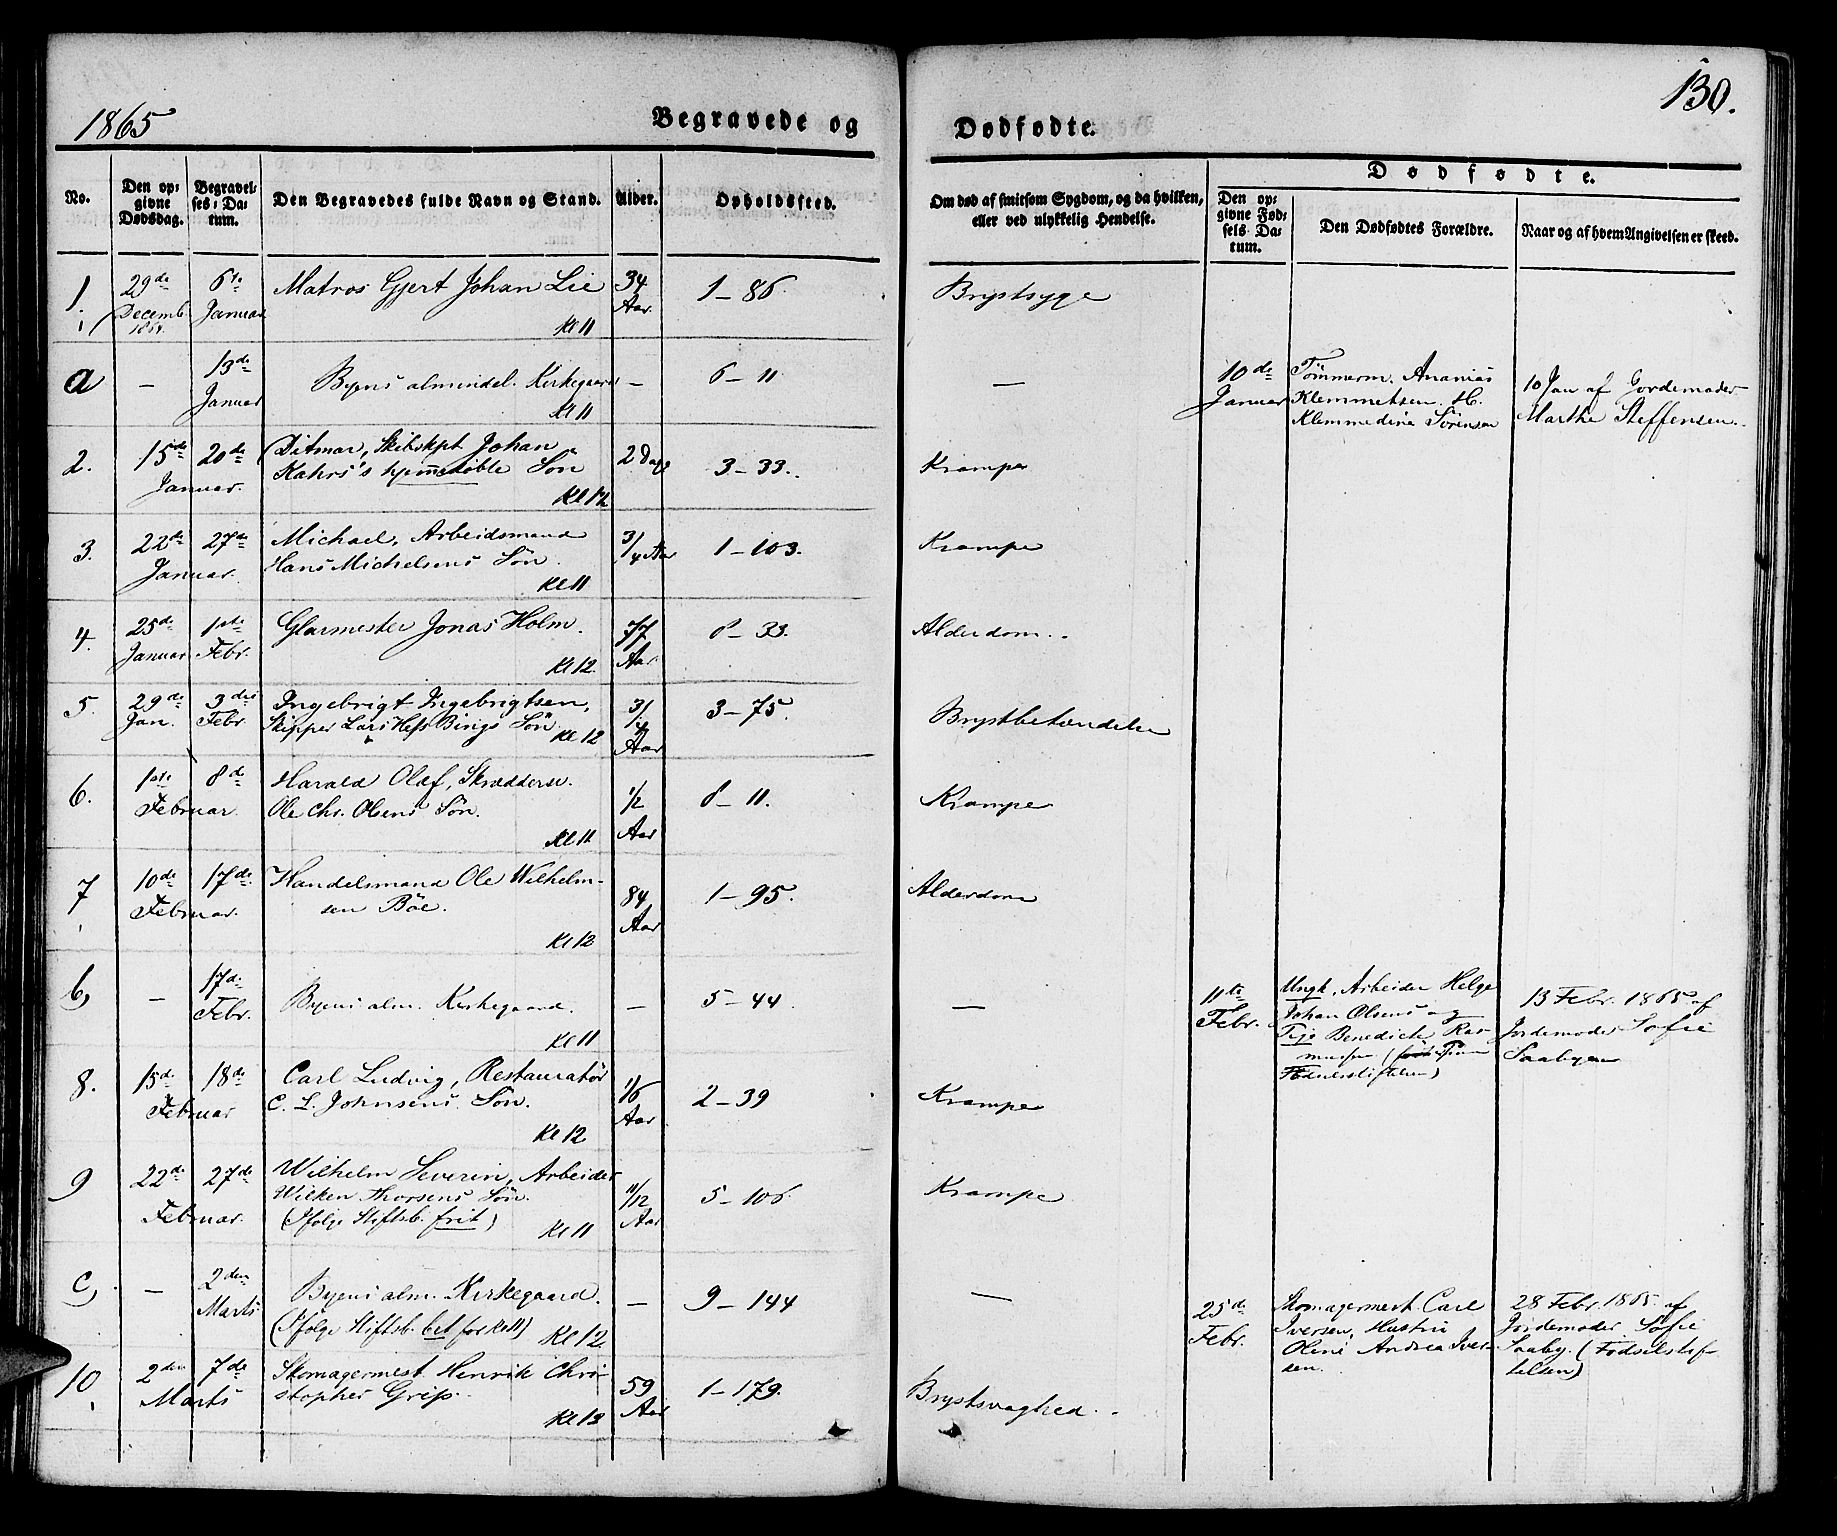 1865
Begravede og
Dødfødte.
130.
No.
Den op-
givne
Dødsdag.
Begravel-
ses-Da-
tum.
Den Begravedes fulde Navn og Stand.
Alder.
Opholdssted.
Om død af smitsom Sygdom, og da hvilken,
eller ved ulykkelig Hendelse.
Dødfødte.
Den op-
givne Fød-
sels Da-
tum.
Den Dødfødtes Forældre.
Naar og af hvem Angivelsen er skeed.
1. 29de 6te Matros Gjert Johan Lie 34 1-86. Brystsyge
Decemb. Januar Aar
1864. Kl 11
a - 13de Byens almindel. Kirkegaard - 6-11 -
Januar Kl 11
10de Tømmerm. Ananias
Januar Klemmetsen. H. 10 Jan af Jordemoder
Klemmedine Sörensen Marthe Steffensen.
2. 15de 20de Ditmar, Skibskpt Johan 2 Dage 3-33. Krampe
Januar. Kahrs's hjemmedöbte Sön
Kl 12
3. 22de 27de Michael, Arbeidsmand 3/4 Aar 1-103. Krampe
Januar. Hans Michelsens Sön.
Kl 11
4. 25de 1ste Glarmester Jonas Holm. 77 8-33. Alderdom.
Januar Febr. Aar
Kl 12.
5. 29de 3die Ingebrigt Ingebrigtsen, 3/4 3-75. Brystbetændelse
Jan. Febr. Skipper Lars Hess Bings Sön. Aar
Kl 12
6. 1ste 8de Harald Olaf, Skræddersv. 1/2 8-11. Krampe
Februar. Ole Chr. Olsens Sön. Aar
Kl 11
7 10de 17de Handelsmand Ole Wilhelm- 84 1-95. Alderdom
Februar. sen Böe. Aar
Kl 12
b, - 17de Byens alm. Kirkegaard. - 5-44 -
Febr. Kl 11
11te Ungk. Arbeider Helge 13 Febr. 1865 af
Febr. Johan Olsens og Jordemoder Sofie
Pige Benedicte Ras- Saabye
mussen (
Födselsstiftelsen)
8. 15de 18de Carl Ludvig, Restauratör 1/6 2-39 Krampe
Februar C. L. Johnsens Sön. Aar
Kl 12
9 22de 27de Wilhelm Severin, Arbeider 11/12 5-106. Krampe
Februar. Wilken Thorsens Sön. Aar
(Ifølge Stiftsb. frit) Kl 11
c, - 2den Byens alm. Kirkegaard. - 9-144 -
Marts (Ifølge Stiftsb. bet for Kl 11) Kl 12.
25de Skomagermest Carl 28 Febr. 1865 af
Febr. Iversen, Hustru Jordemoder Sofie
Oline Andrea Iver- Saaby. (Fødselsstif-
sen. telsen)
10 2den 7de Skomagermest. Henrik Chri- 59 1-179. Brystsvaghed.
Marts stopher Grip. Aar
Kl 12